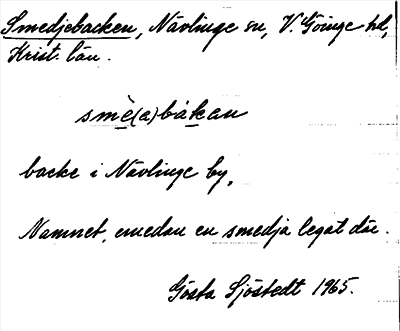 Smedjebacken, Nävlinge sn, V. Göinge hd,
Krist. län.
smè(a)bákan
backe i Nävlinge by.
Namnet, emedan en smedja legat där.
Gösta Sjöstedt 1965.